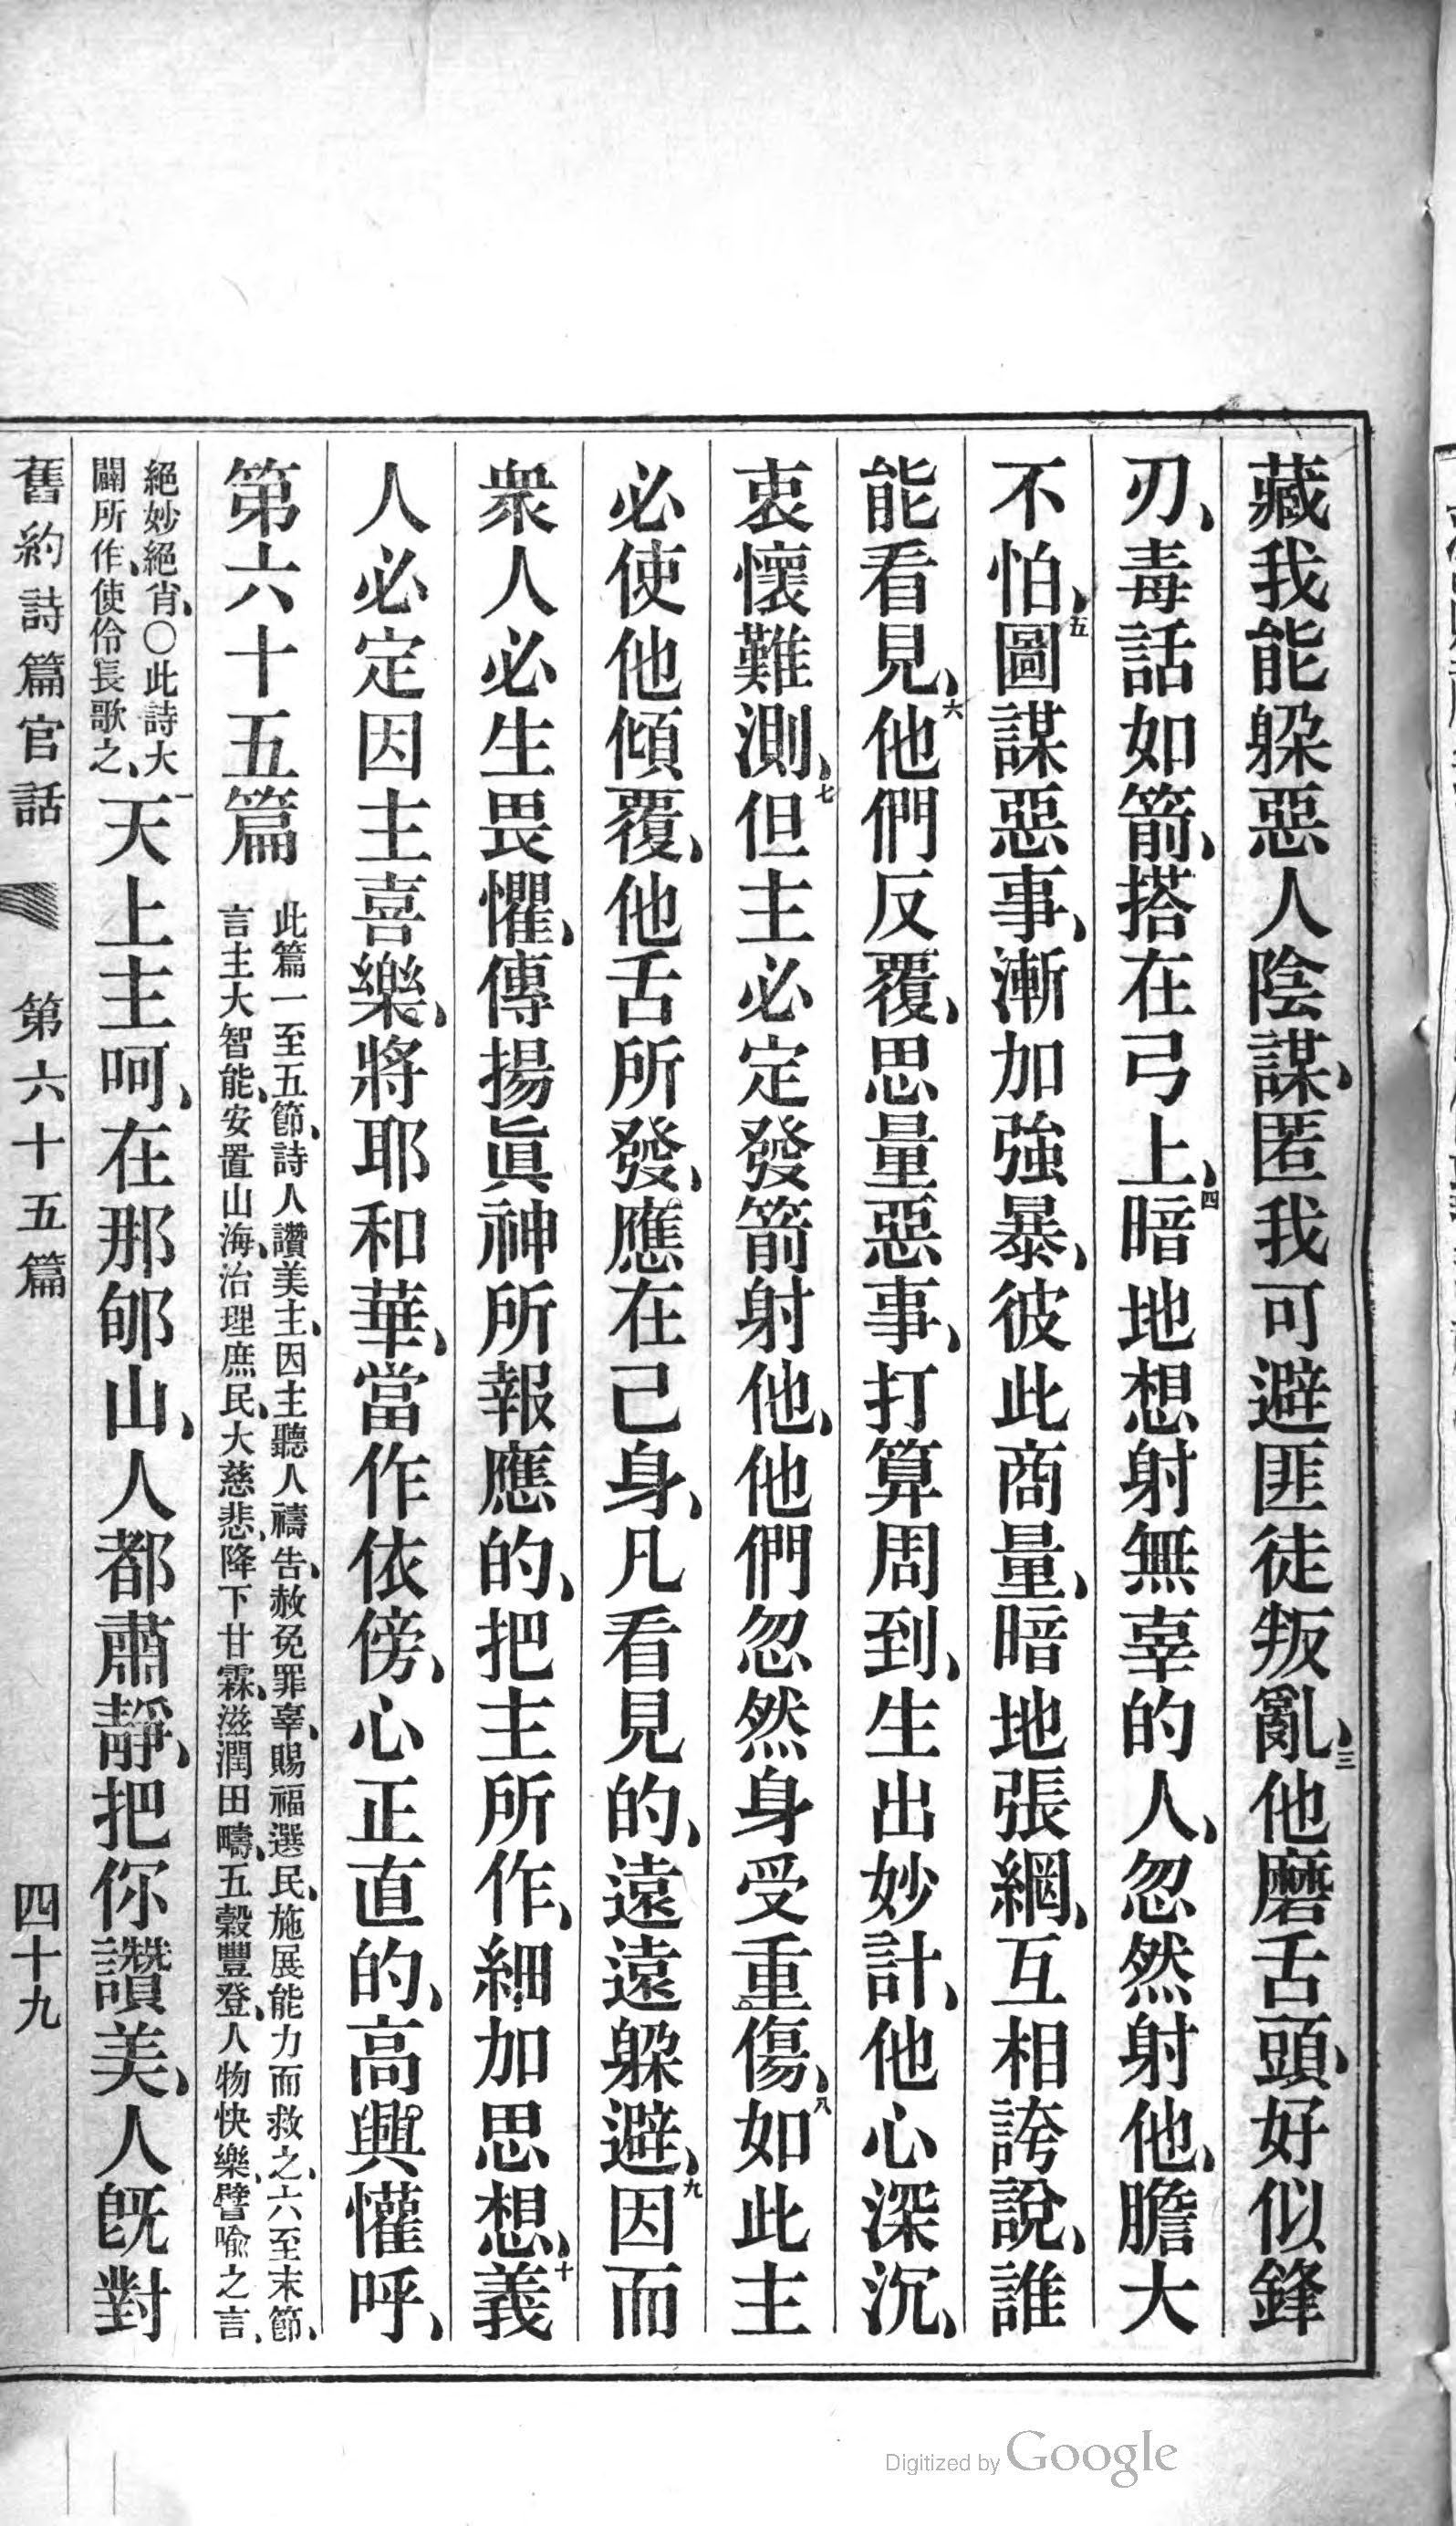 藏我能躱惡人陰謀、匿我可避匪徒叛亂、三他磨舌頭、好似鋒
刃、毒話如箭、搭在弓上、四暗地想射無辜的人、忽然射他、膽大
不怕、五圖謀惡事、漸加強暴、彼此商量、暗地張網、互相誇說、誰
能看見、六他們反覆、思量惡事、打算周到、生出妙計、他心深沉、
衷懷難測、七但主必定發箭射他、他們忽然身受重傷、八如此主
必使他傾覆、他舌所發、應在己身、凡看見的、遠遠躱避、九因而
衆人必生畏懼、傳揚眞神所報應的、把主所作、細加思想、十義
人必定因主喜樂、將耶和華、當作依傍、心正直的、高興懽呼、
第六十五篇
此篇一至五節、詩人讚美主、因主聽人禱告、赦免罪辜、賜福選民、施展能力而救之、六至末節、
言主大智能、安置山海、治理庶民、大慈悲、降下甘霖、滋潤田疇、五穀豐登、人物快樂、譬喻之言、
絕妙絕肖、○此詩大
闢所作、使伶長歌之、
一天上主呵、在那郇山、人都肅靜、把你讚美、人旣對
舊約詩篇官話 第六十五篇 四十九
Digitized by Google